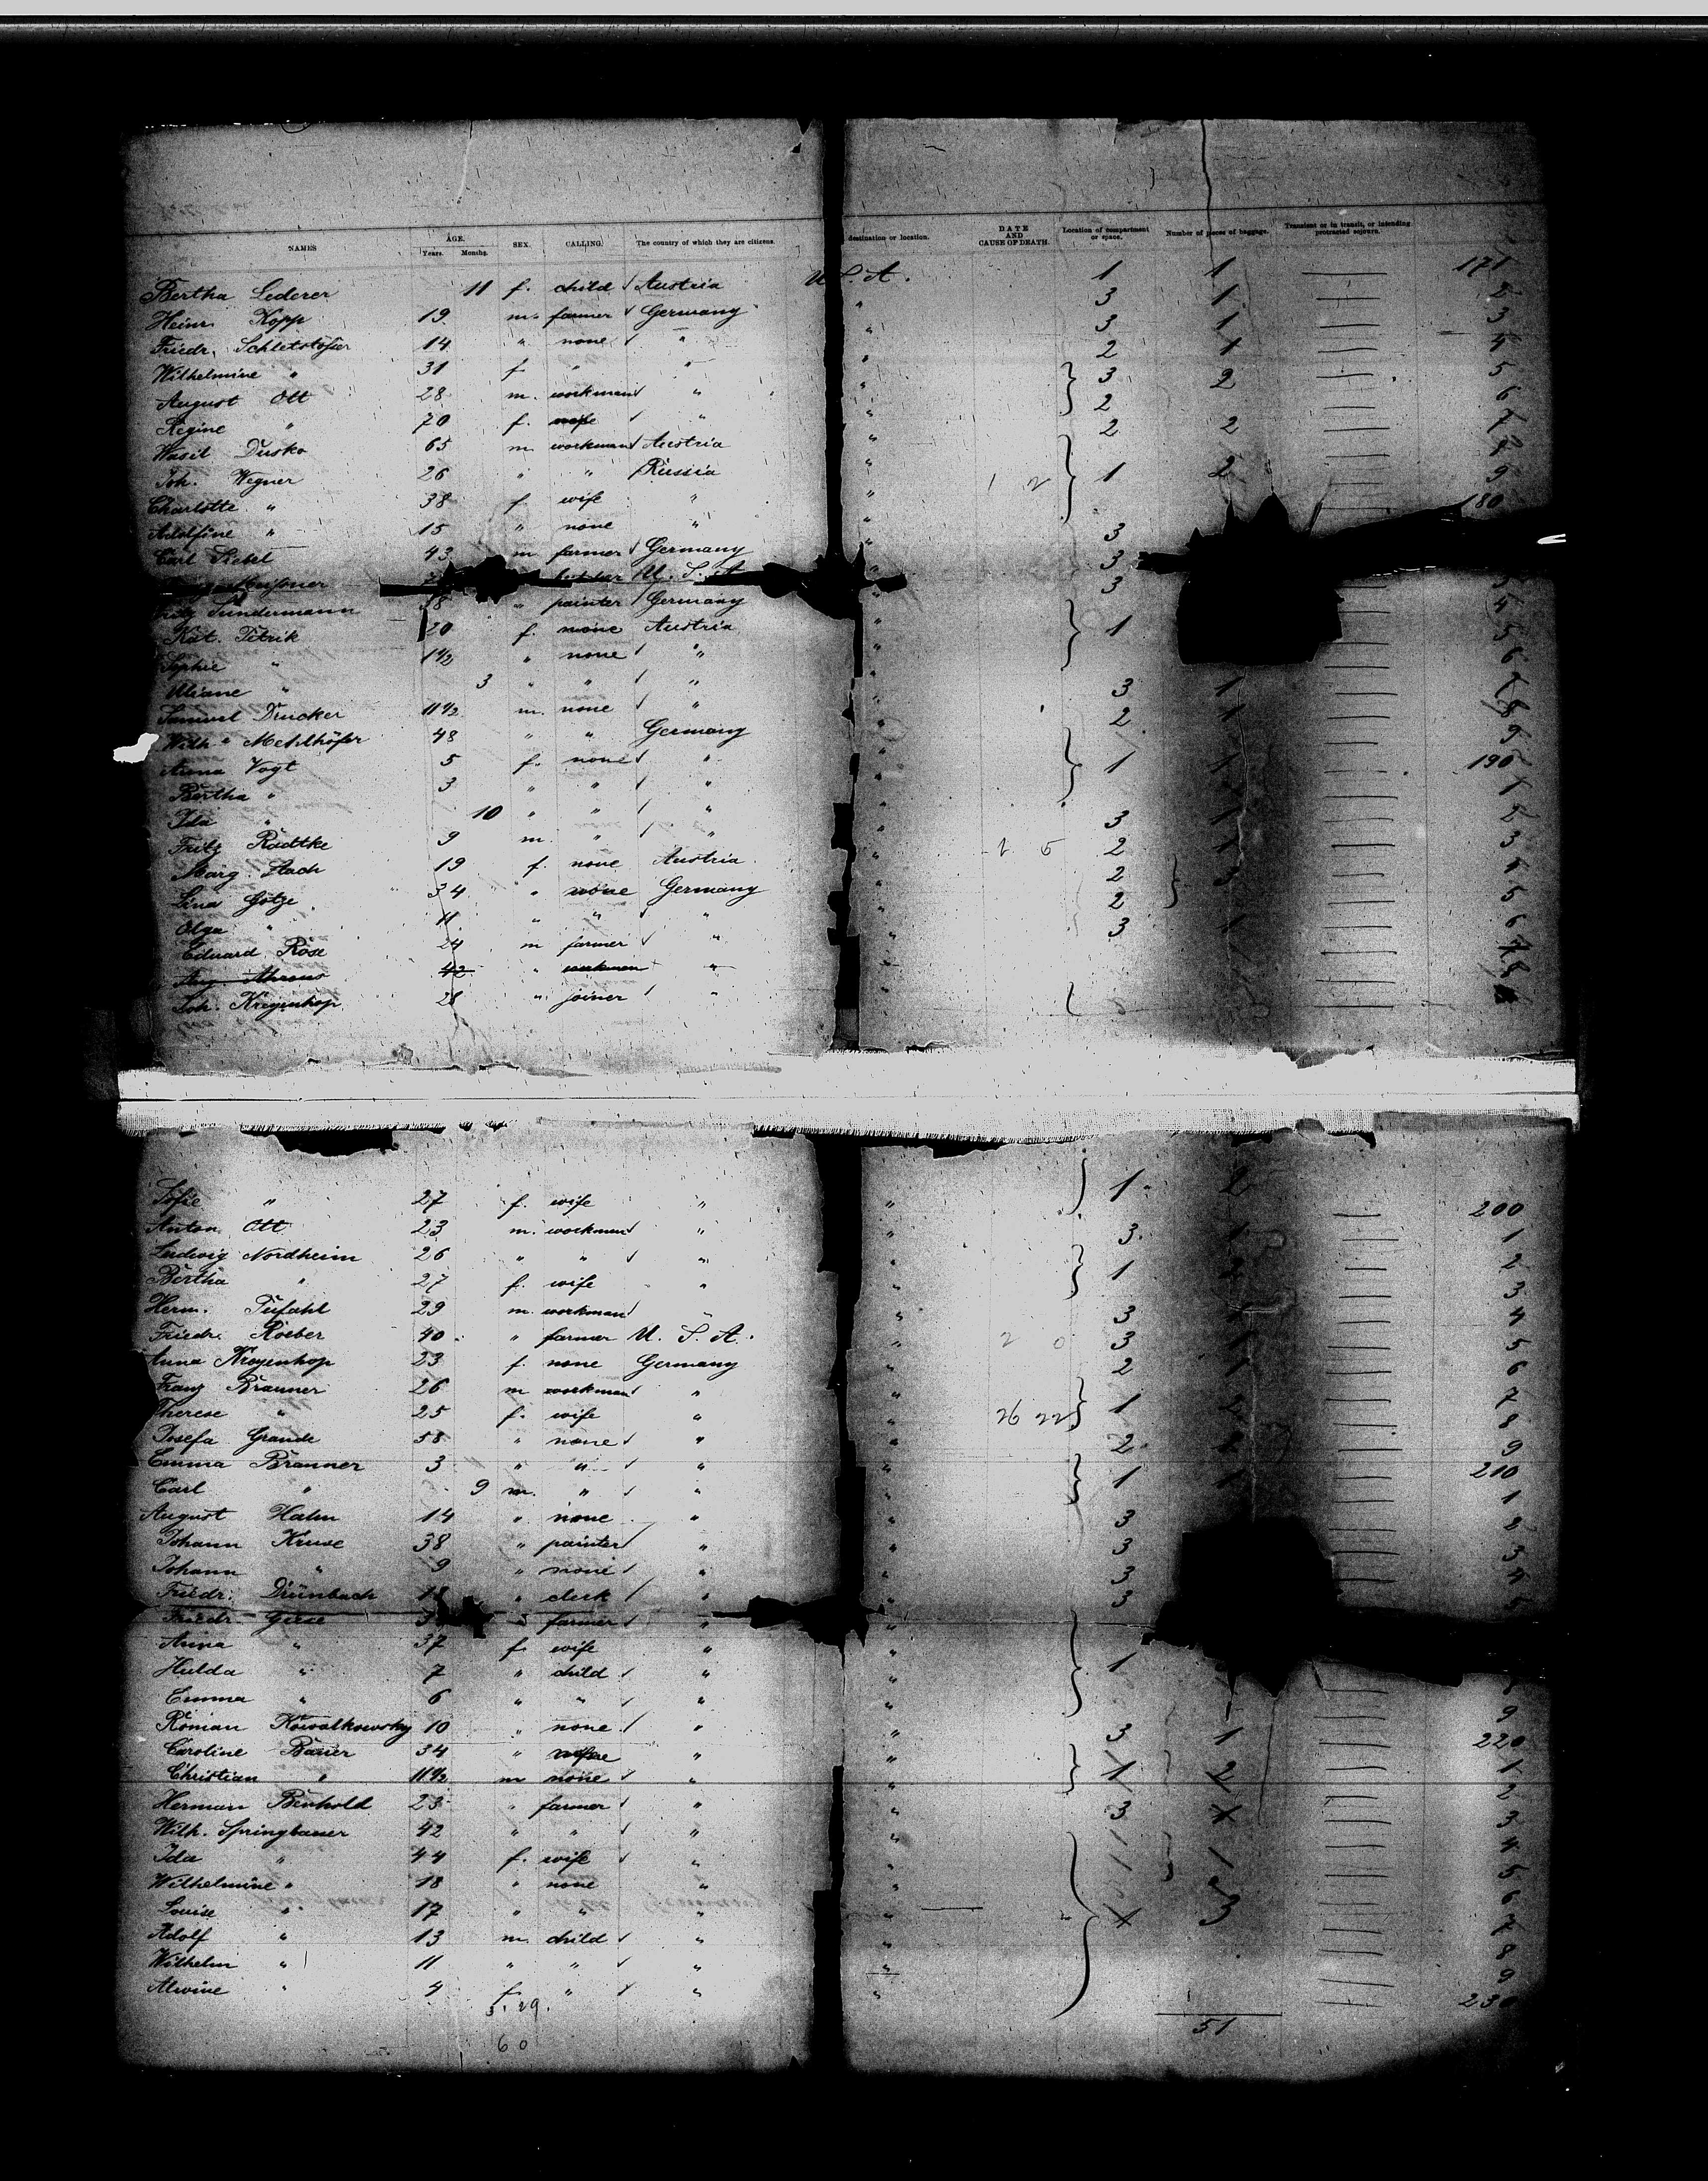 NAMES AGE. Years. Months. SEX. CALLING. The country of which they are citizens. destination or location. DATE AND CAUSE OF DEATH. Location of compartment or space. Number of pieces of baggage. Transient or in transit, or intending protracted sojourn.
Bertha Lederer 11 f. child Austria U.S.A. 1 1 171
Heinr. Kopp 19 m. farmer Germany " 3 1 2
Friedr. 14 " none " " 3 1 3
Wilhelmine " 31 f " " " 2 1 4
August Ott 28 m. workman " " 3 2 5
Regine " 70 f. " " 2 6
Wasil Dusko 65 m workman Austria " 2 2 7
Joh. Wegner 26 " " Russia " 8
Charlotte " 38 f. wife " " 1 2 9
Adolfine " 15 " none " " 180
Carl Siebel 43 m farmer Germany " 3
Meissner U.S.A. " 3
Fritz Sundermann 38 " painter Germany " 3
Kat. Petrik 20 f. none Austria " 4
Sophie " 1 1/2 " none " " 1 5
Uliane " 3 " " " " 6
Samuel Drucker 11 1/2 m. none " " 3 1 7
Wilh. Mehlhöfer 48 " " Germany " 2 1 8
Anna Vogt 5 f. none " " 9
Bertha " 3 " " " " 1 1 190
Ida " 10 " " " " 1
Fritz Radtke 9 m. " " " 3 1 2
Marg. Stach 19 f. none Austria " 2 1 3
Lina Götze 34 " none Germany " 2 3 4
Olga " 11 " " " " 2 5
Eduard Rose 24 m farmer " " 3 1 6
Aug. Ahrens 42 " workman "
Joh. Kregenhop 28 " joiner " "
Sofie " 27 f. wife " " 1 2
Anton Ott 23 m. workman " " 3 1 200
Ludwig Nordheim 26 " " " " 1
Bertha " 27 f. wife " " 1 2 2
Herm. Tufahl 29 m workman " " 3 3
Friedr. Roeber 40 " farmer U.S.A. " 3 1 4
Anna Kregenhop 23 f. none Germany " 2 1 5
Franz Branner 26 m workman " " 6
Therese " 25 f. wife " " 1 2 7
Josefa Grande 58 " none " " 2 1 8
Emma Branner 3 " " " " 9
Carl " 9 m. " " " 1 1 210
August Hahn 14 " none " " 3 1
Johann Kruse 38 " painter " " 3 2
Johann " 9 " none " " 3 3
Friedr. Drünbach 18 " clerk " " 3 4
Friedr. Giese " farmer " "
Anna " 37 f. wife " "
Hulda " 7 " child " " 1
Emma " 6 " " " "
Roman Kowalkowsky 10 " none " " 3 1 9
Caroline Bauer 34 " " " 220
Christian " 11 1/2 m none " " 1 2 1
Herman Benhold 23 " farmer " " 3 2
Wilh. Springbauer 42 " " " " 3
Ida " 44 f. wife " " 4
Wilhelmine " 18 " none " " 5
Louise " 17 " " " " 3 6
Adolf " 13 m. child " " 7
Wilhelm " 11 " " " " 8
Alwine " 4 f. " " " 9
230
31 29.
60
51